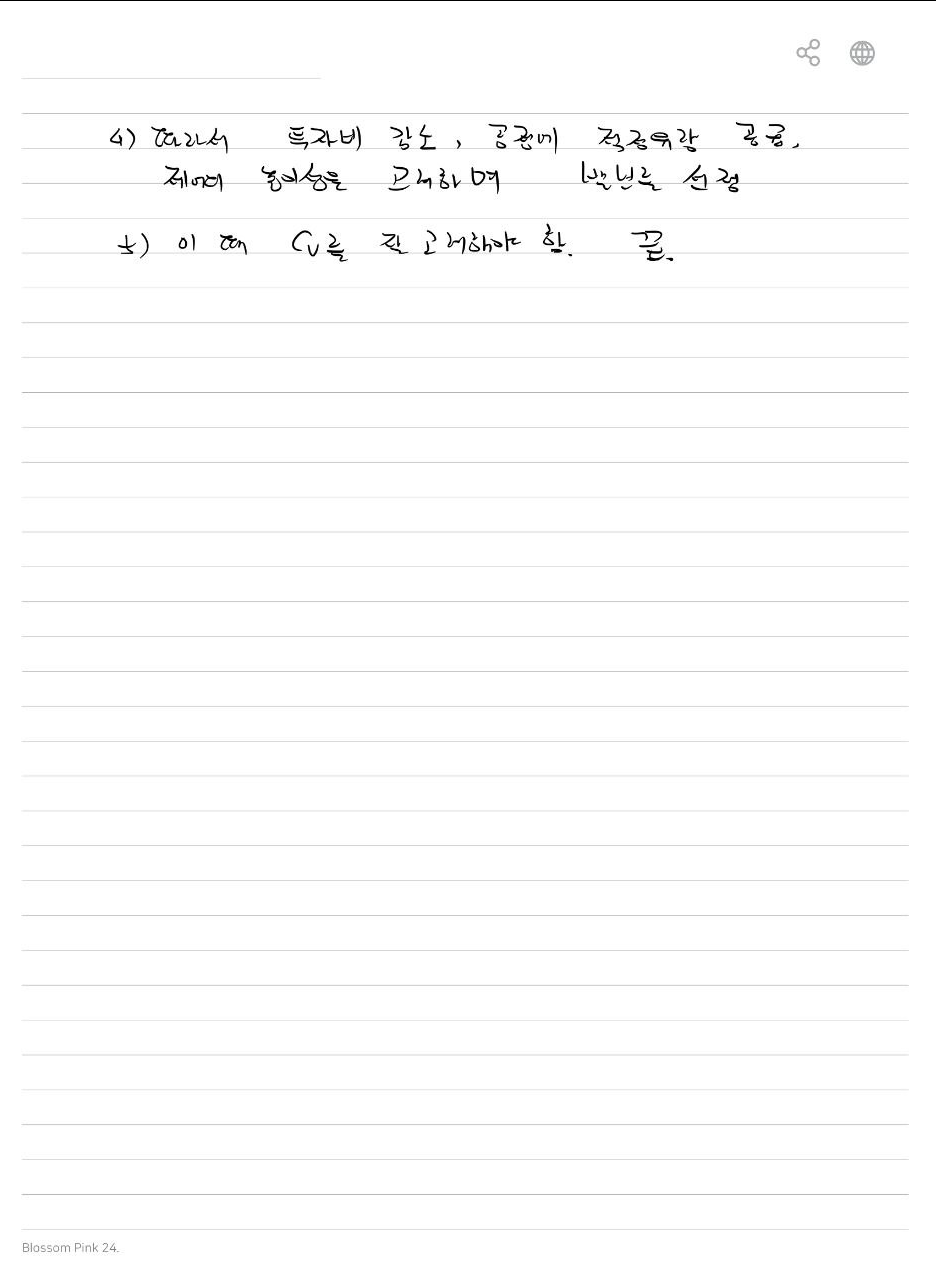 4) 따라서 투자비 감소, 공급에 적정유량 공급,
제어의 용이성을 고려하며 밸브를 선정
5) 이 때 Cv를 잘 고려해야 함. 끝.
Blossom Pink 24.